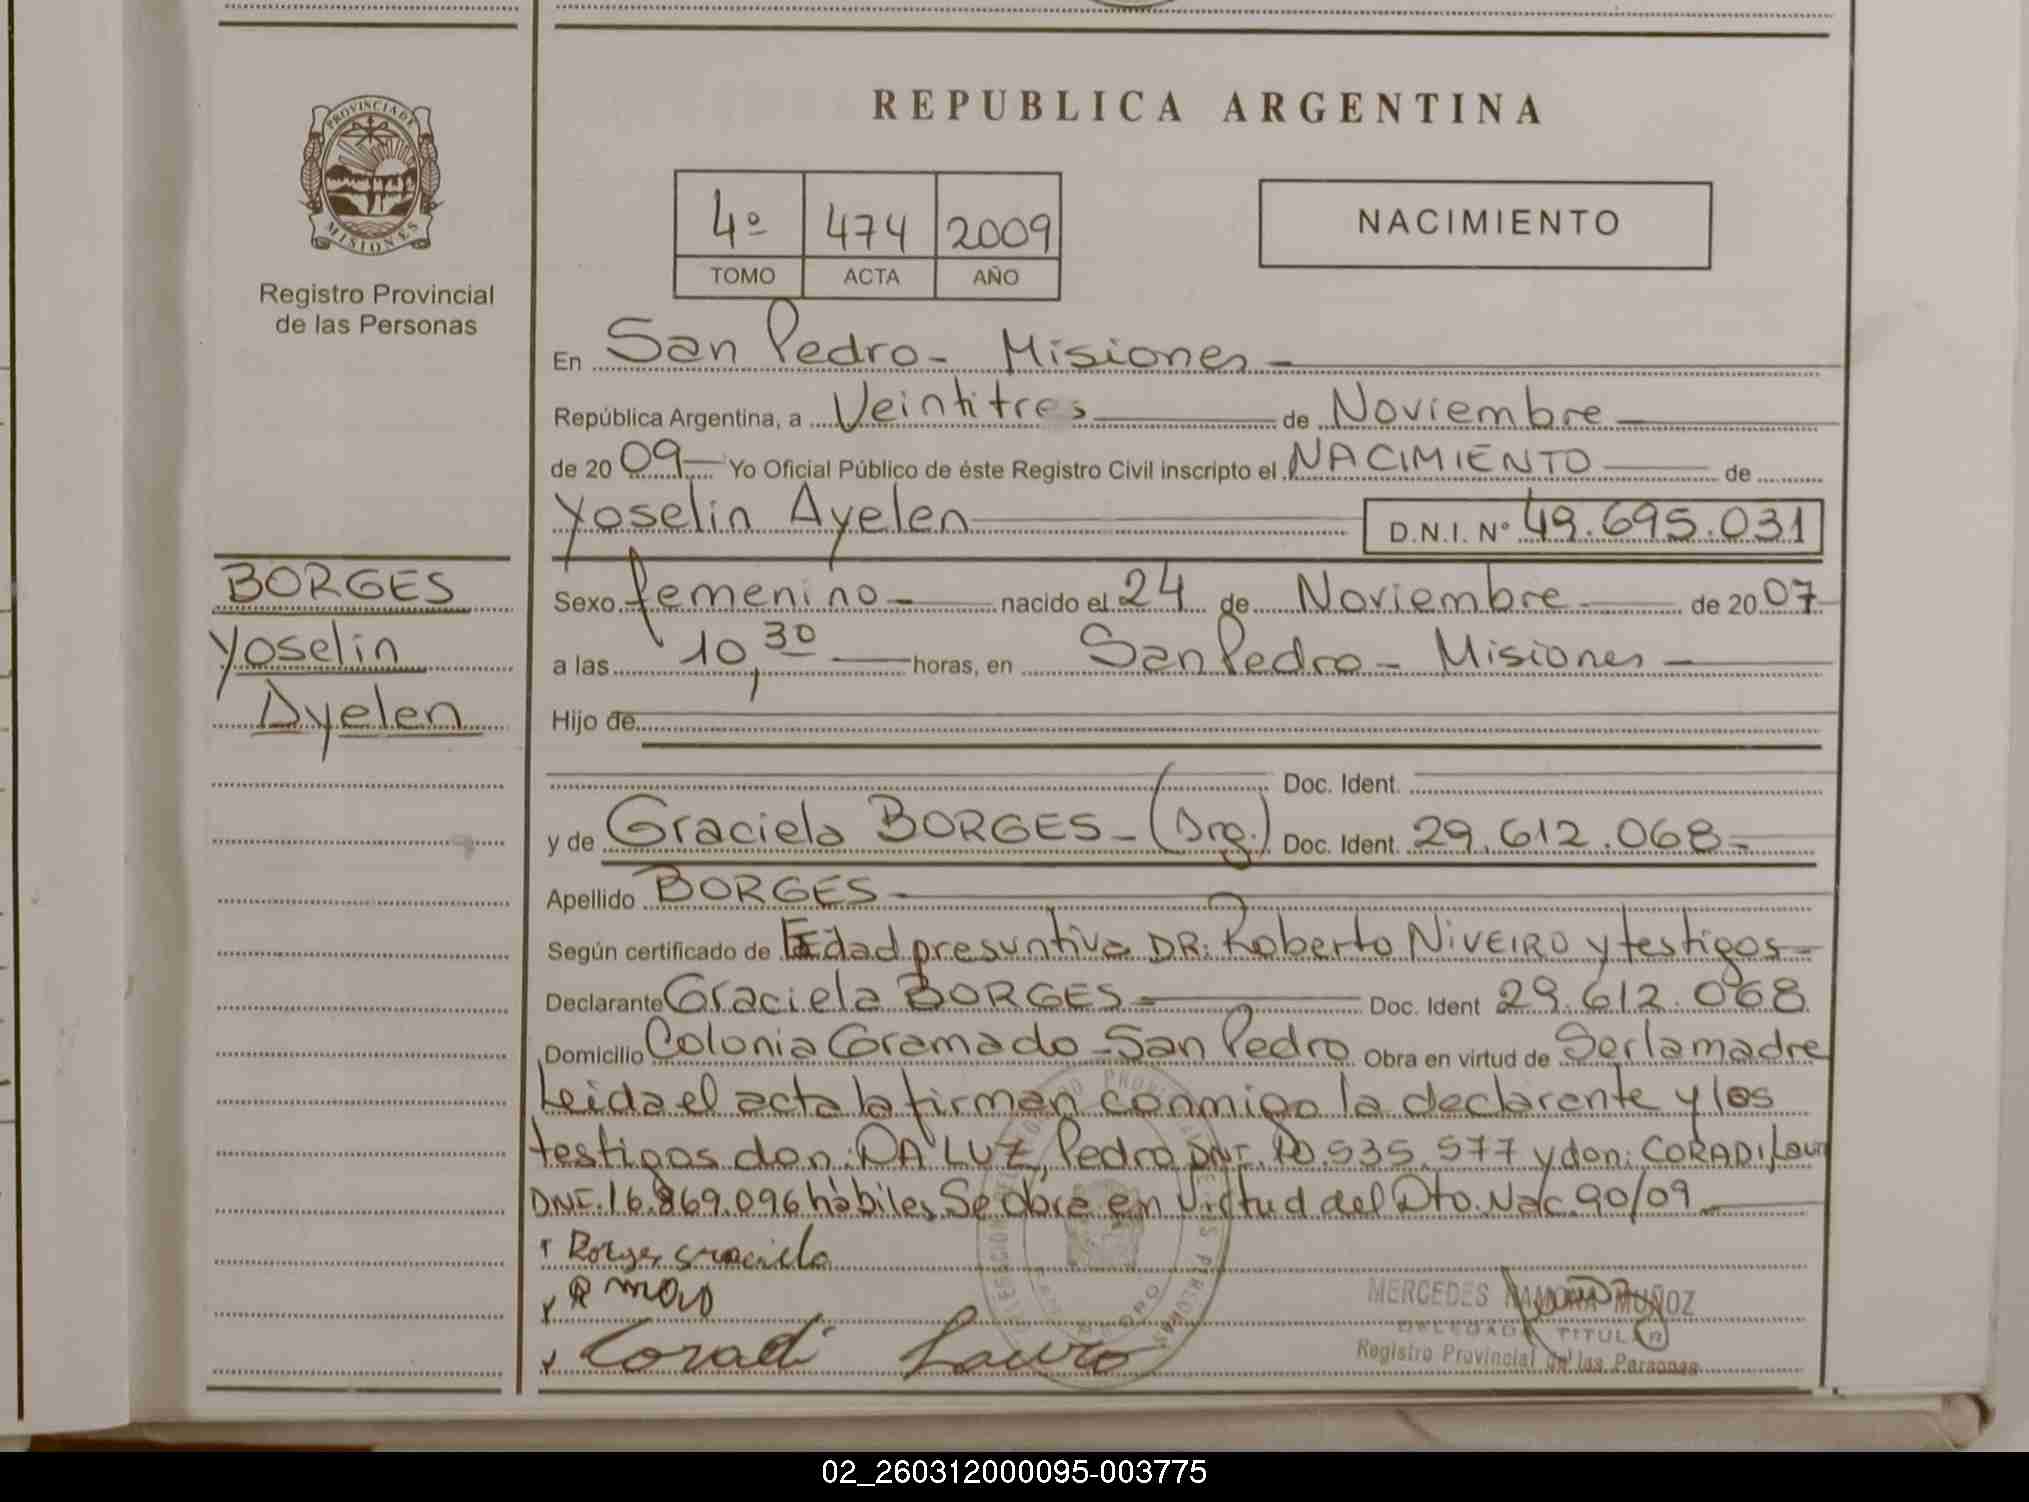 PROVINCIA DE
MISIONES
Registro Provincial
de las Personas
BORGES
Yoselin
Ayelen
REPUBLICA ARGENTINA
4º 474 2009
TOMO ACTA AÑO
NACIMIENTO
En San Pedro - Misiones -
República Argentina, a Veintitres de Noviembre
de 20 09 - Yo Oficial Público de éste Registro Civil inscripto el NACIMIENTO de
Yoselin Ayelen D.N.I. Nº 49.695.031
Sexo femenino - nacido el 24 de Noviembre de 20 07
a las 10,30 horas, en San Pedro - Misiones -
Hijo de
Doc. Ident.
y de Graciela BORGES - (Arg.) Doc. Ident. 29.612.068 -
Apellido BORGES -
Según certificado de Edad presuntiva DR: Roberto NIVEIRO y testigos -
Declarante Graciela BORGES - Doc. Ident 29.612.068
Domicilio Colonia Gramado - San Pedro Obra en virtud de Ser la madre
Leida el acta la firman conmigo la declarante y los
testigos don: DA LUZ, Pedro DNI. 535.577 y don: CORADI,
DNI. 16.869.096 hábiles, Se obra en virtud del Dto. Nac. 90/09
Borges Graciela
Coradi Lauro
MERCEDES RAMONA MUÑOZ
DELEGADA TITULAR
Registro Provincial de las Personas
02_260312000095-003775